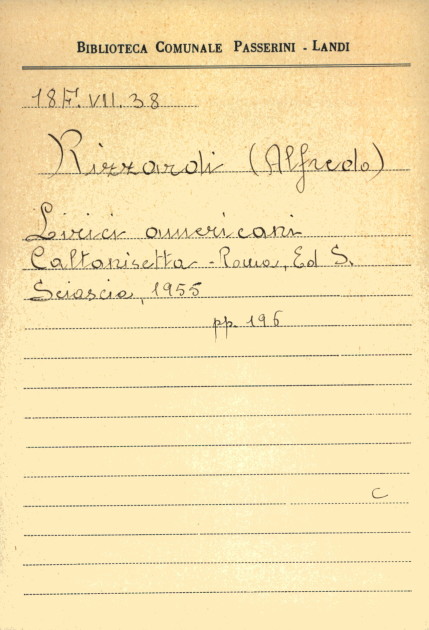 BIBLIOTECA COMUNALE PASSERINI - LANDI
18F. VII. 38
Rizzardi (Alfredo)
Lirici americani
Caltanisetta - Roma, Ed S.
Sciascia, 1955
pp. 196
C